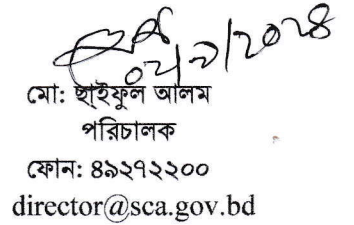 ০২/০৯/২০২৪
মো: ছাইফুল আলম
পরিচালক
ফোন: ৪৯২৭২২০০
director@sca.gov.bd